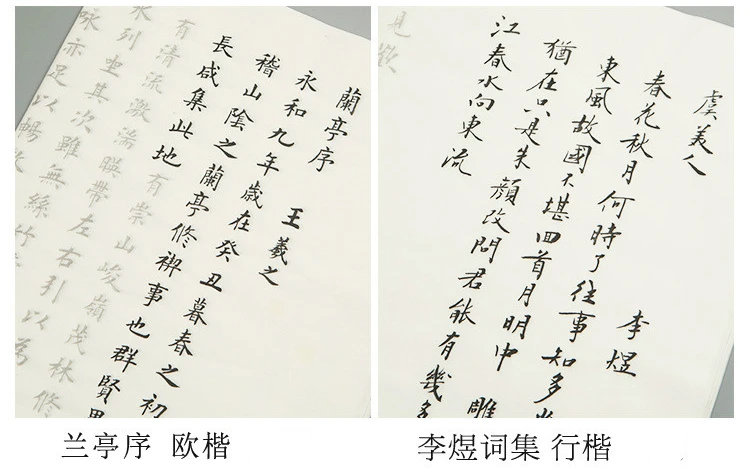 蘭亭序 王羲之
永和九年歲在癸丑暮春之初
稽山陰之蘭亭修禊事也群賢
長咸集此地有崇山峻嶺茂林修
有清流激湍暎帶左右引以為
水列坐其次雖無絲竹
咏亦足以暢
虞美人 李煜
春花秋月何時了往事知多
東風故國不堪回首月明中 雕
猶在只是朱顏改問君能有幾多
江春水向東流
見歡
兰亭序 欧楷
李煜词集 行楷